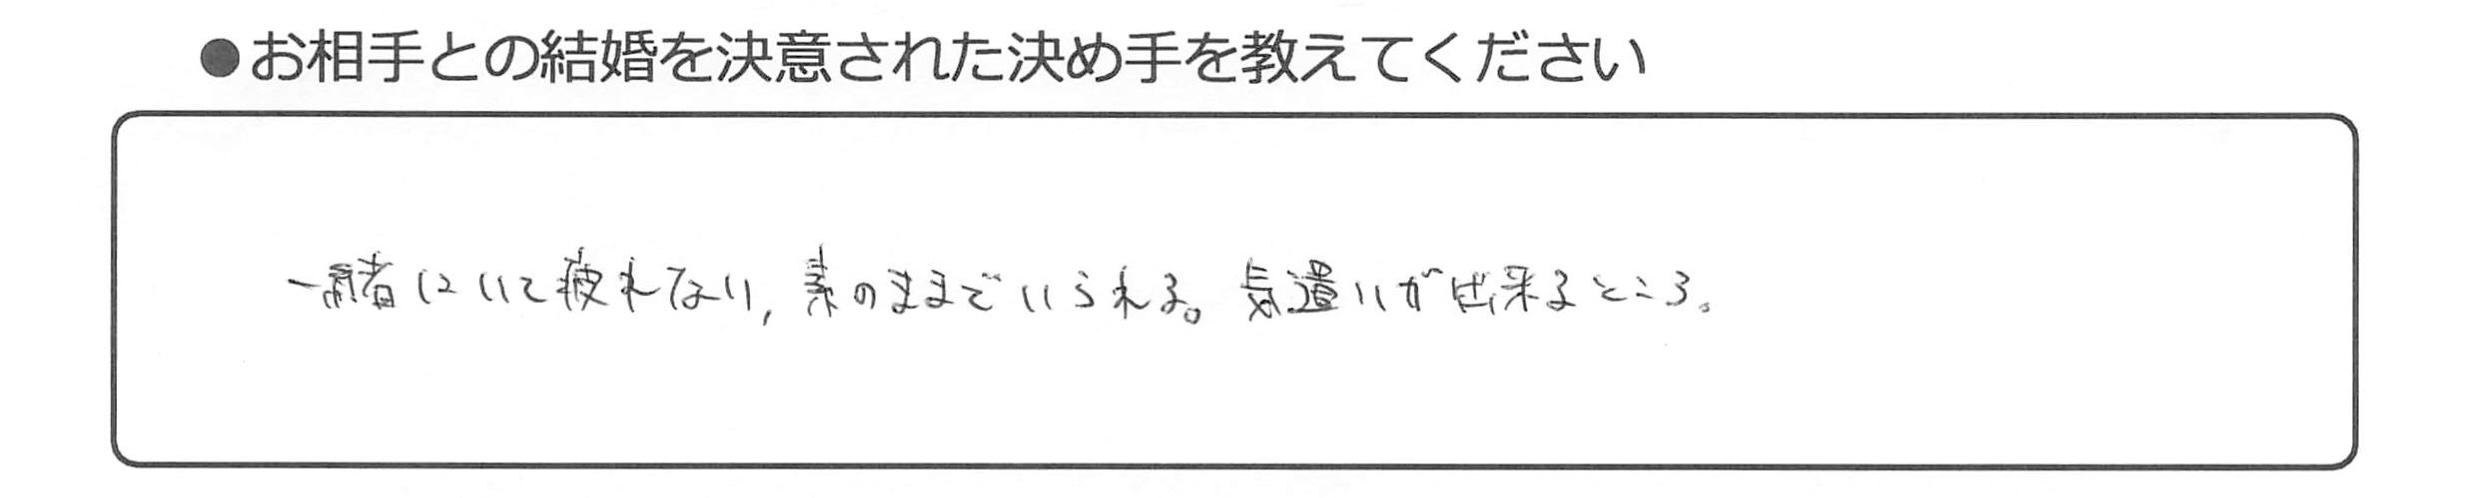 ●お相手との結婚を決意された決め手を教えてください
一緒にいて疲れない、素のままでいられる。気遣いが出来るところ。